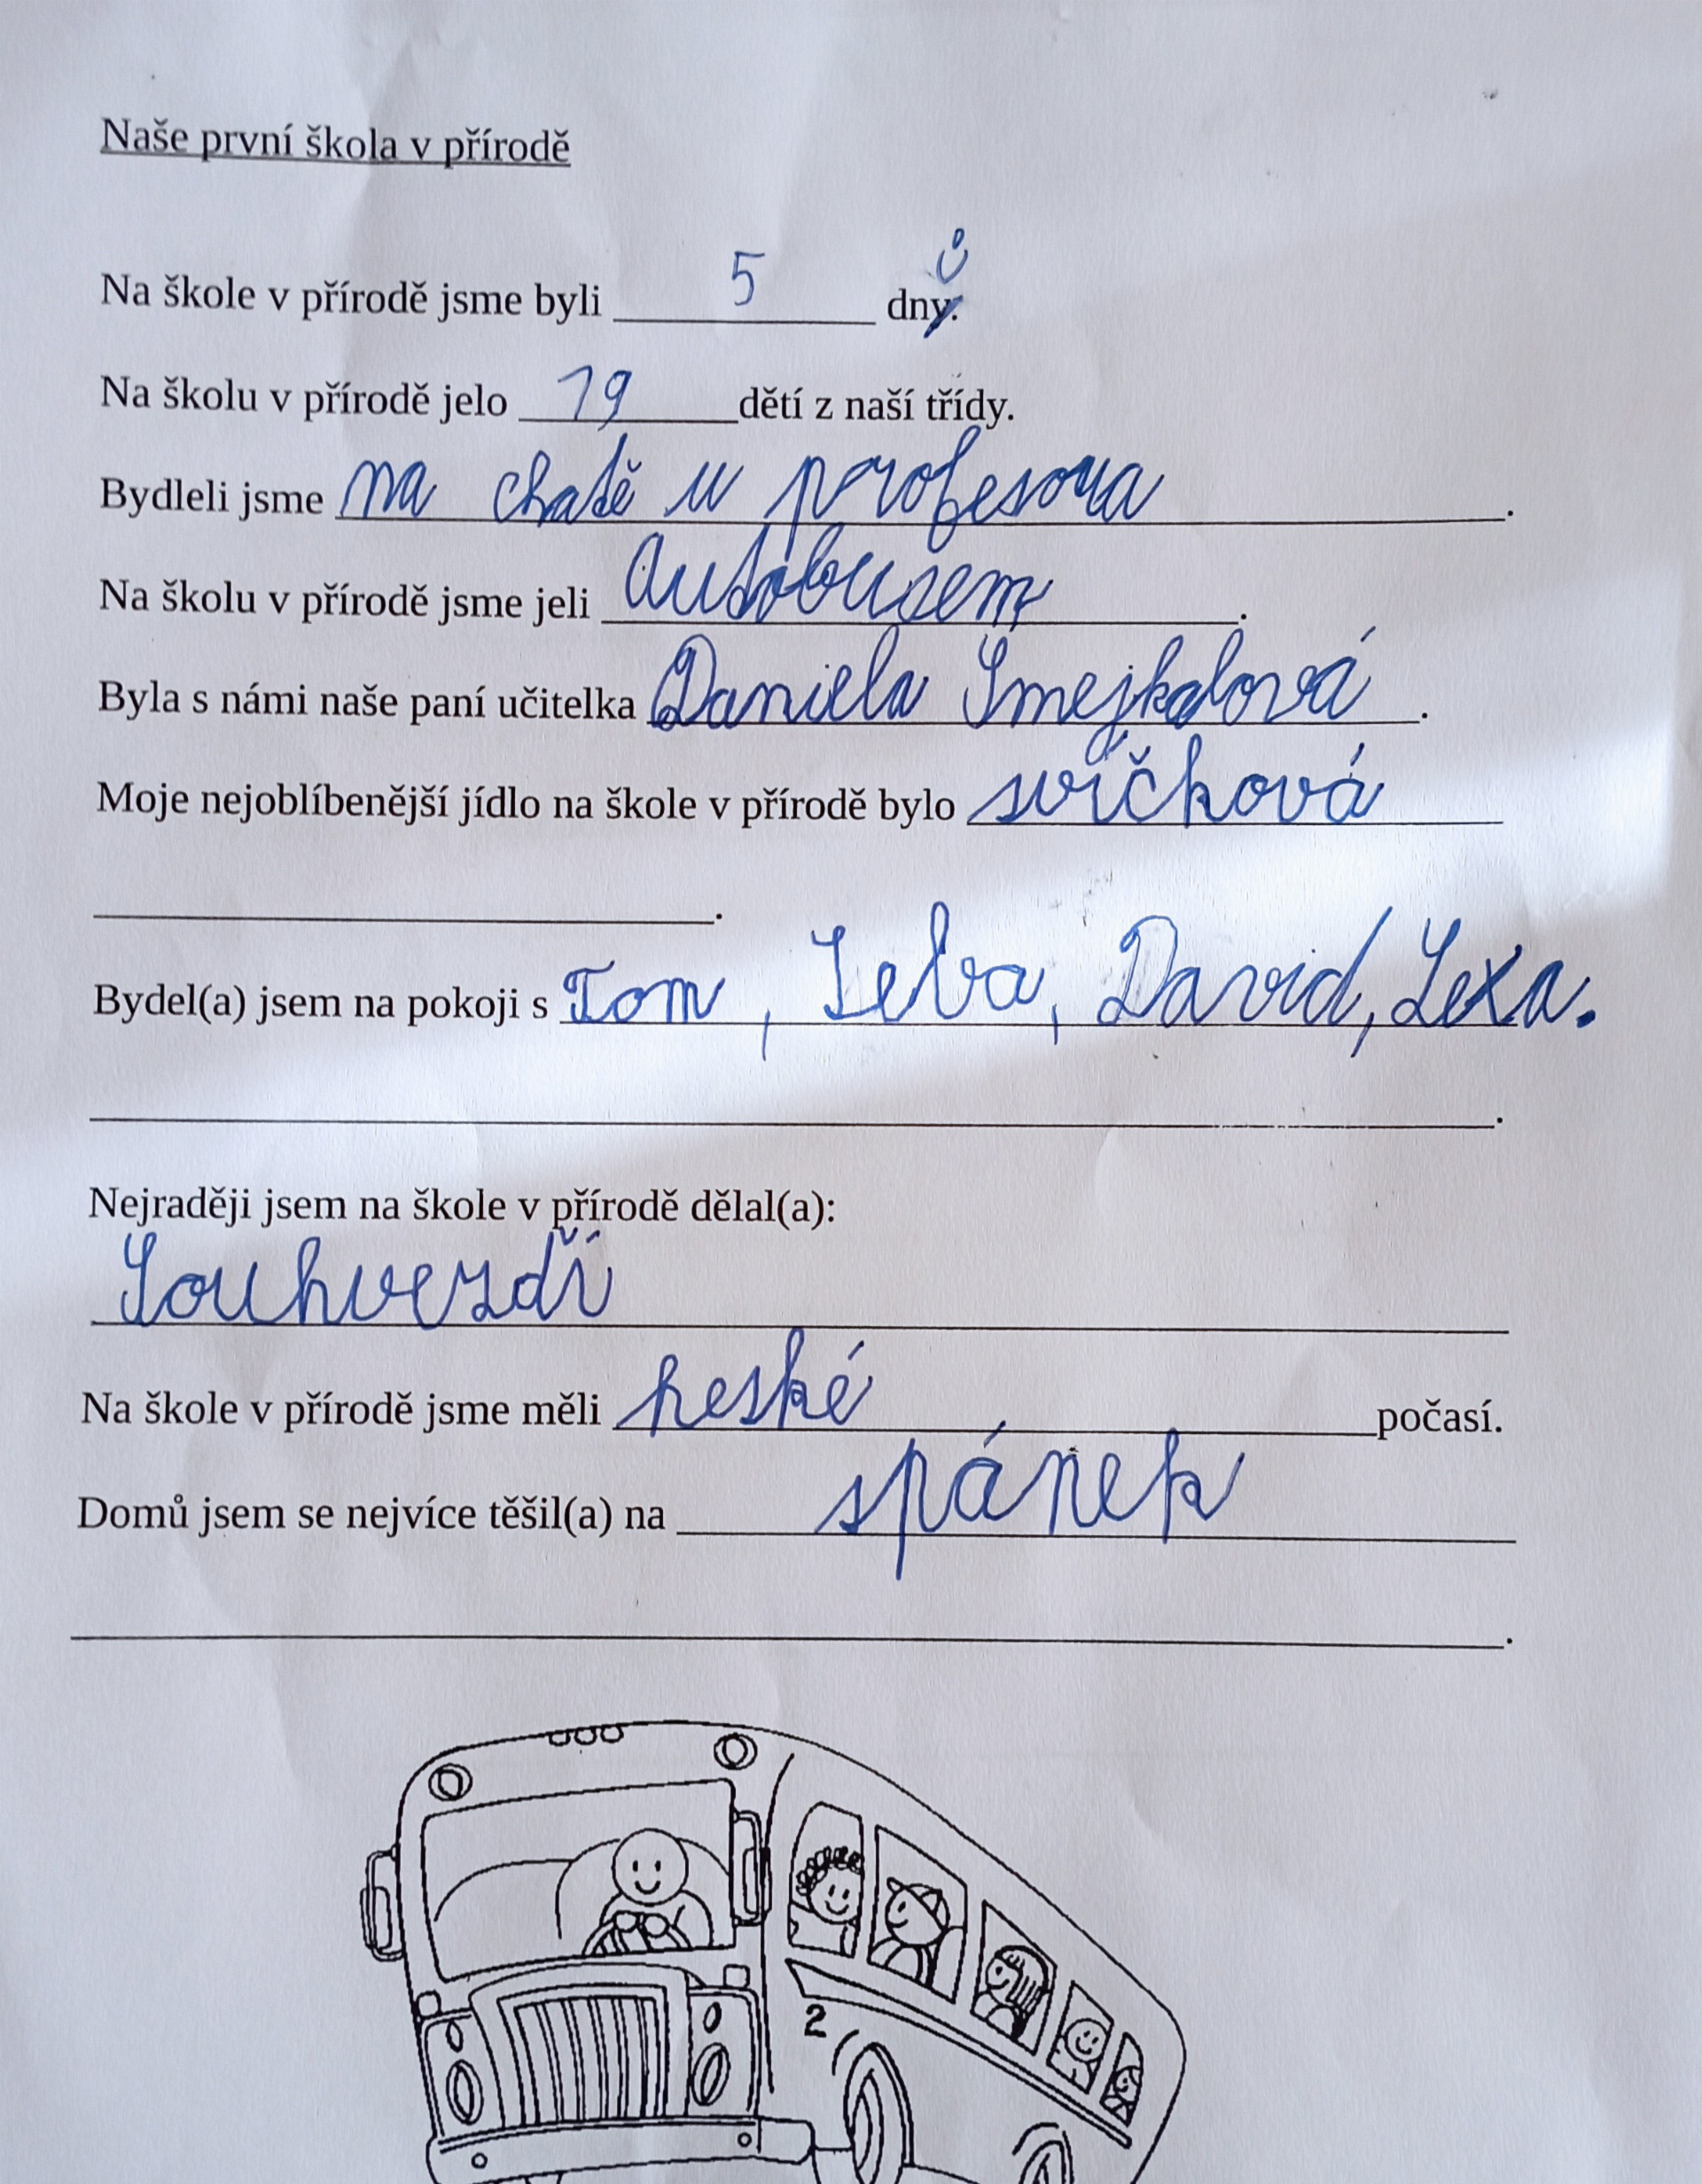 Naše první škola v přírodě
Na škole v přírodě jsme byli 5 dnů
Na školu v přírodě jelo 19 dětí z naší třídy.
Bydleli jsme na chatě u profesora.
Na školu v přírodě jsme jeli autobusem.
Byla s námi naše paní učitelka Daniela Smejkalová.
Moje nejoblíbenější jídlo na škole v přírodě bylo svíčková
.
Bydel(a) jsem na pokoji s Tom, Seba, David, Lexa.
.
Nejraději jsem na škole v přírodě dělal(a):
Souhvezdí
Na škole v přírodě jsme měli heské počasí.
Domů jsem se nejvíce těšil(a) na spánek
.
2